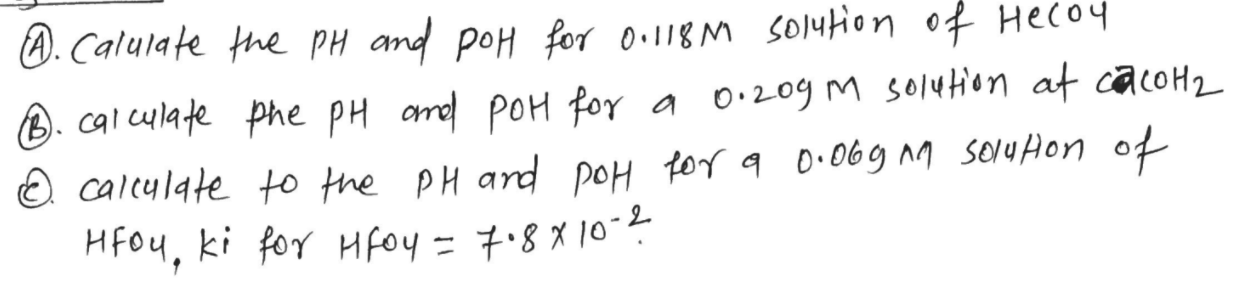 Ⓐ. Calulate the PH and POH for 0.118M solution of HeCO4
Ⓑ. calculate phe PH and POH for a 0.209 M solution at cacoH2
Ⓒ calculate to the PH and POH for a 0.069 M solution of
HFO4, ki for HFO4 = 7.8 X 10-2